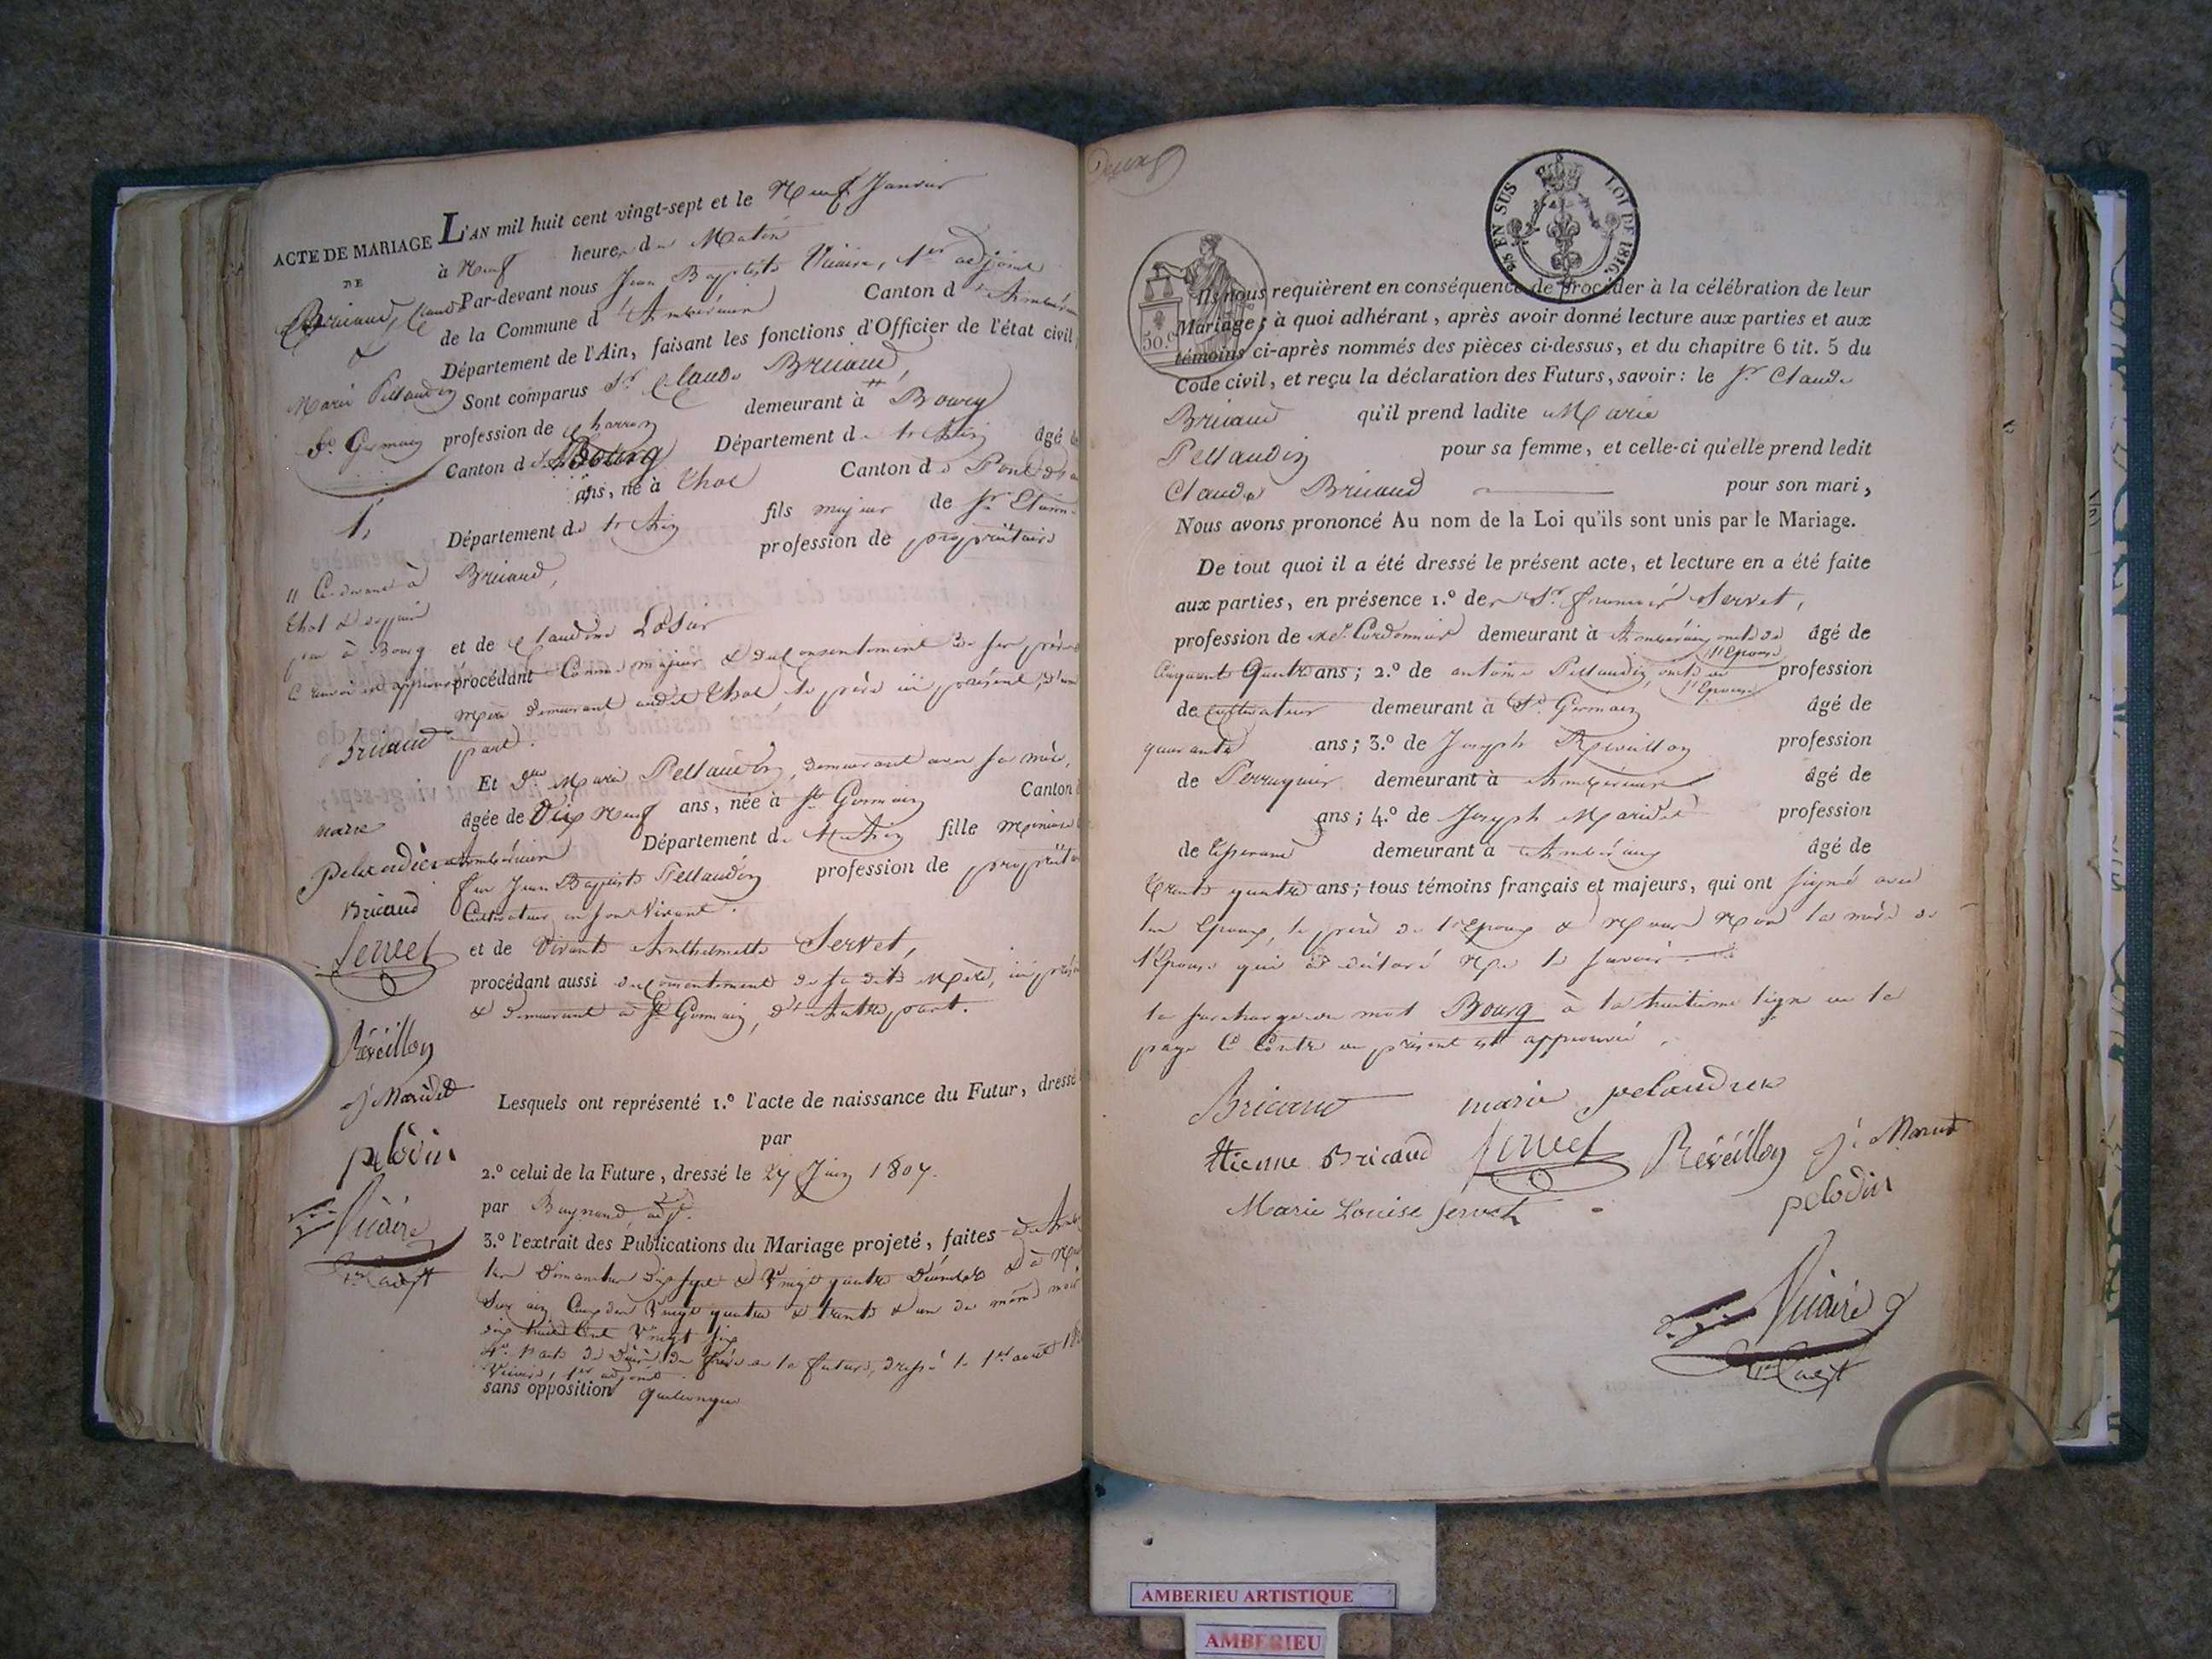 ACTE DE MARIAGE
DE
Bricaud, Claude
&
Marie Pellaudin
St. Germain
1,
L'AN mil huit cent vingt-sept et le Neuf Janvier
à Neuf heures du Matin
Par-devant nous Jean Baptiste Vicaire, 1er adjoint
de la Commune d'Ambérieux Canton d'Ambérieux
Département de l'Ain, faisant les fonctions d'Officier de l'état civil,
Sont comparus Sr. Claude Bricaud,
profession de charron demeurant à Bourg
Canton de Bourg Département de l'Ain âgé de
ans, né à Thol Canton de Pont d'
Département de l'Ain fils majeur de Sr. Etienne
Bricaud, profession de propriétaire
et de Claudine
procédant Comme majeur & du Consentement de ses père &
mère demeurant audit Thol, le père ici présent, d'une
part.
Et Dlle Marie Pellaudin, demeurant avec sa mère,
âgée de Dix Neuf ans, née à St. Germain Canton
d'Ambérieux Département de l'Ain fille mineure
feu Jean Baptiste Pellaudin profession de
Cultivateur en son Vivant.
et de Vivante Anthelmette Servet,
procédant aussi du Consentement de sa dite Mère, ici
& demeurant à St. Germain, d'Autre part.
Lesquels ont représenté 1.º l'acte de naissance du Futur, dressé
par
2.º celui de la Future, dressé le 27 Juin 1807.
par Baynand adjt.
3.º l'extrait des Publications du Mariage projeté, faites
les Dimanches Dix sept & Vingt quatre Décembre & à
Vingt quatre & trente & un du même mois
dix huit Cent Vingt Six
4º l'acte de Décès du Père de la future, dressé le 1er août
Vicaire, 1er adjoint.
sans opposition quelconque
Thol
à Bourg
Bricaud
marie
Bricaud
Servet
Réveillon
j. Maridet
pelodin
Vicaire
1er adjt
EN SUS
LOI DE 1816.
50.c
Ils nous requièrent en conséquence de procéder à la célébration de leur
Mariage; à quoi adhérant, après avoir donné lecture aux parties et aux
témoins ci-après nommés des pièces ci-dessus, et du chapitre 6 tit. 5 du
Code civil, et reçu la déclaration des Futurs, savoir: le Sr. Claude
Bricaud qu'il prend ladite Marie
Pellaudin pour sa femme, et celle-ci qu'elle prend ledit
Claude Bricaud pour son mari,
Nous avons prononcé Au nom de la Loi qu'ils sont unis par le Mariage.
De tout quoi il a été dressé le présent acte, et lecture en a été faite
aux parties, en présence 1.º de Sr. Servet,
profession de Md. Cordonnier demeurant à Ambérieux, oncle de l'Epouse âgé de
Cinquante Quatre ans; 2.º de antoine Pellaudin, oncle de l'Epouse profession
de Cultivateur demeurant à St. Germain âgé de
quarante ans; 3.º de Joseph Réveillon profession
de Perruquier demeurant à Ambérieux âgé de
ans; 4.º de Joseph Maridet profession
de Tisserand demeurant à Ambérieux âgé de
Trente quatre ans; tous témoins français et majeurs, qui ont signé avec
les Epoux, le père de l'Epoux & Nous Non la mère de
l'Epouse qui a déclaré Ne le savoir.
la surcharge du mot Bourg à la huitième ligne de la
page Ci Contre du présent est approuvée.
Bricaud marie pelaudien
Etienne Bricaud Servet Réveillon j. Maridet
Marie Louise Servet pelodin
Vicaire
1er adjt
AMBERIEU ARTISTIQUE
AMBERIEU